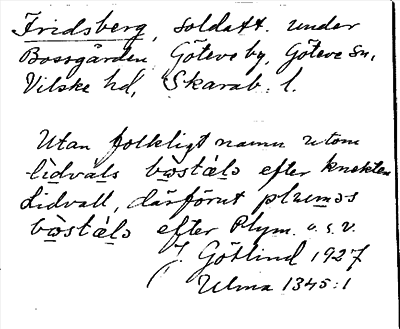 Fridsberg, soldatt. under
Bossgården Göteve by, Göteve sn,
Vilske hd, Skarab. l.
Utan folkligt namn utom
lìdvàls bòstàlə efter knekten
Lidvall, därförut plæməs
bòstàlə efter Plym. o.s.v.
J. Götlind 1927
Ulma 1345:1